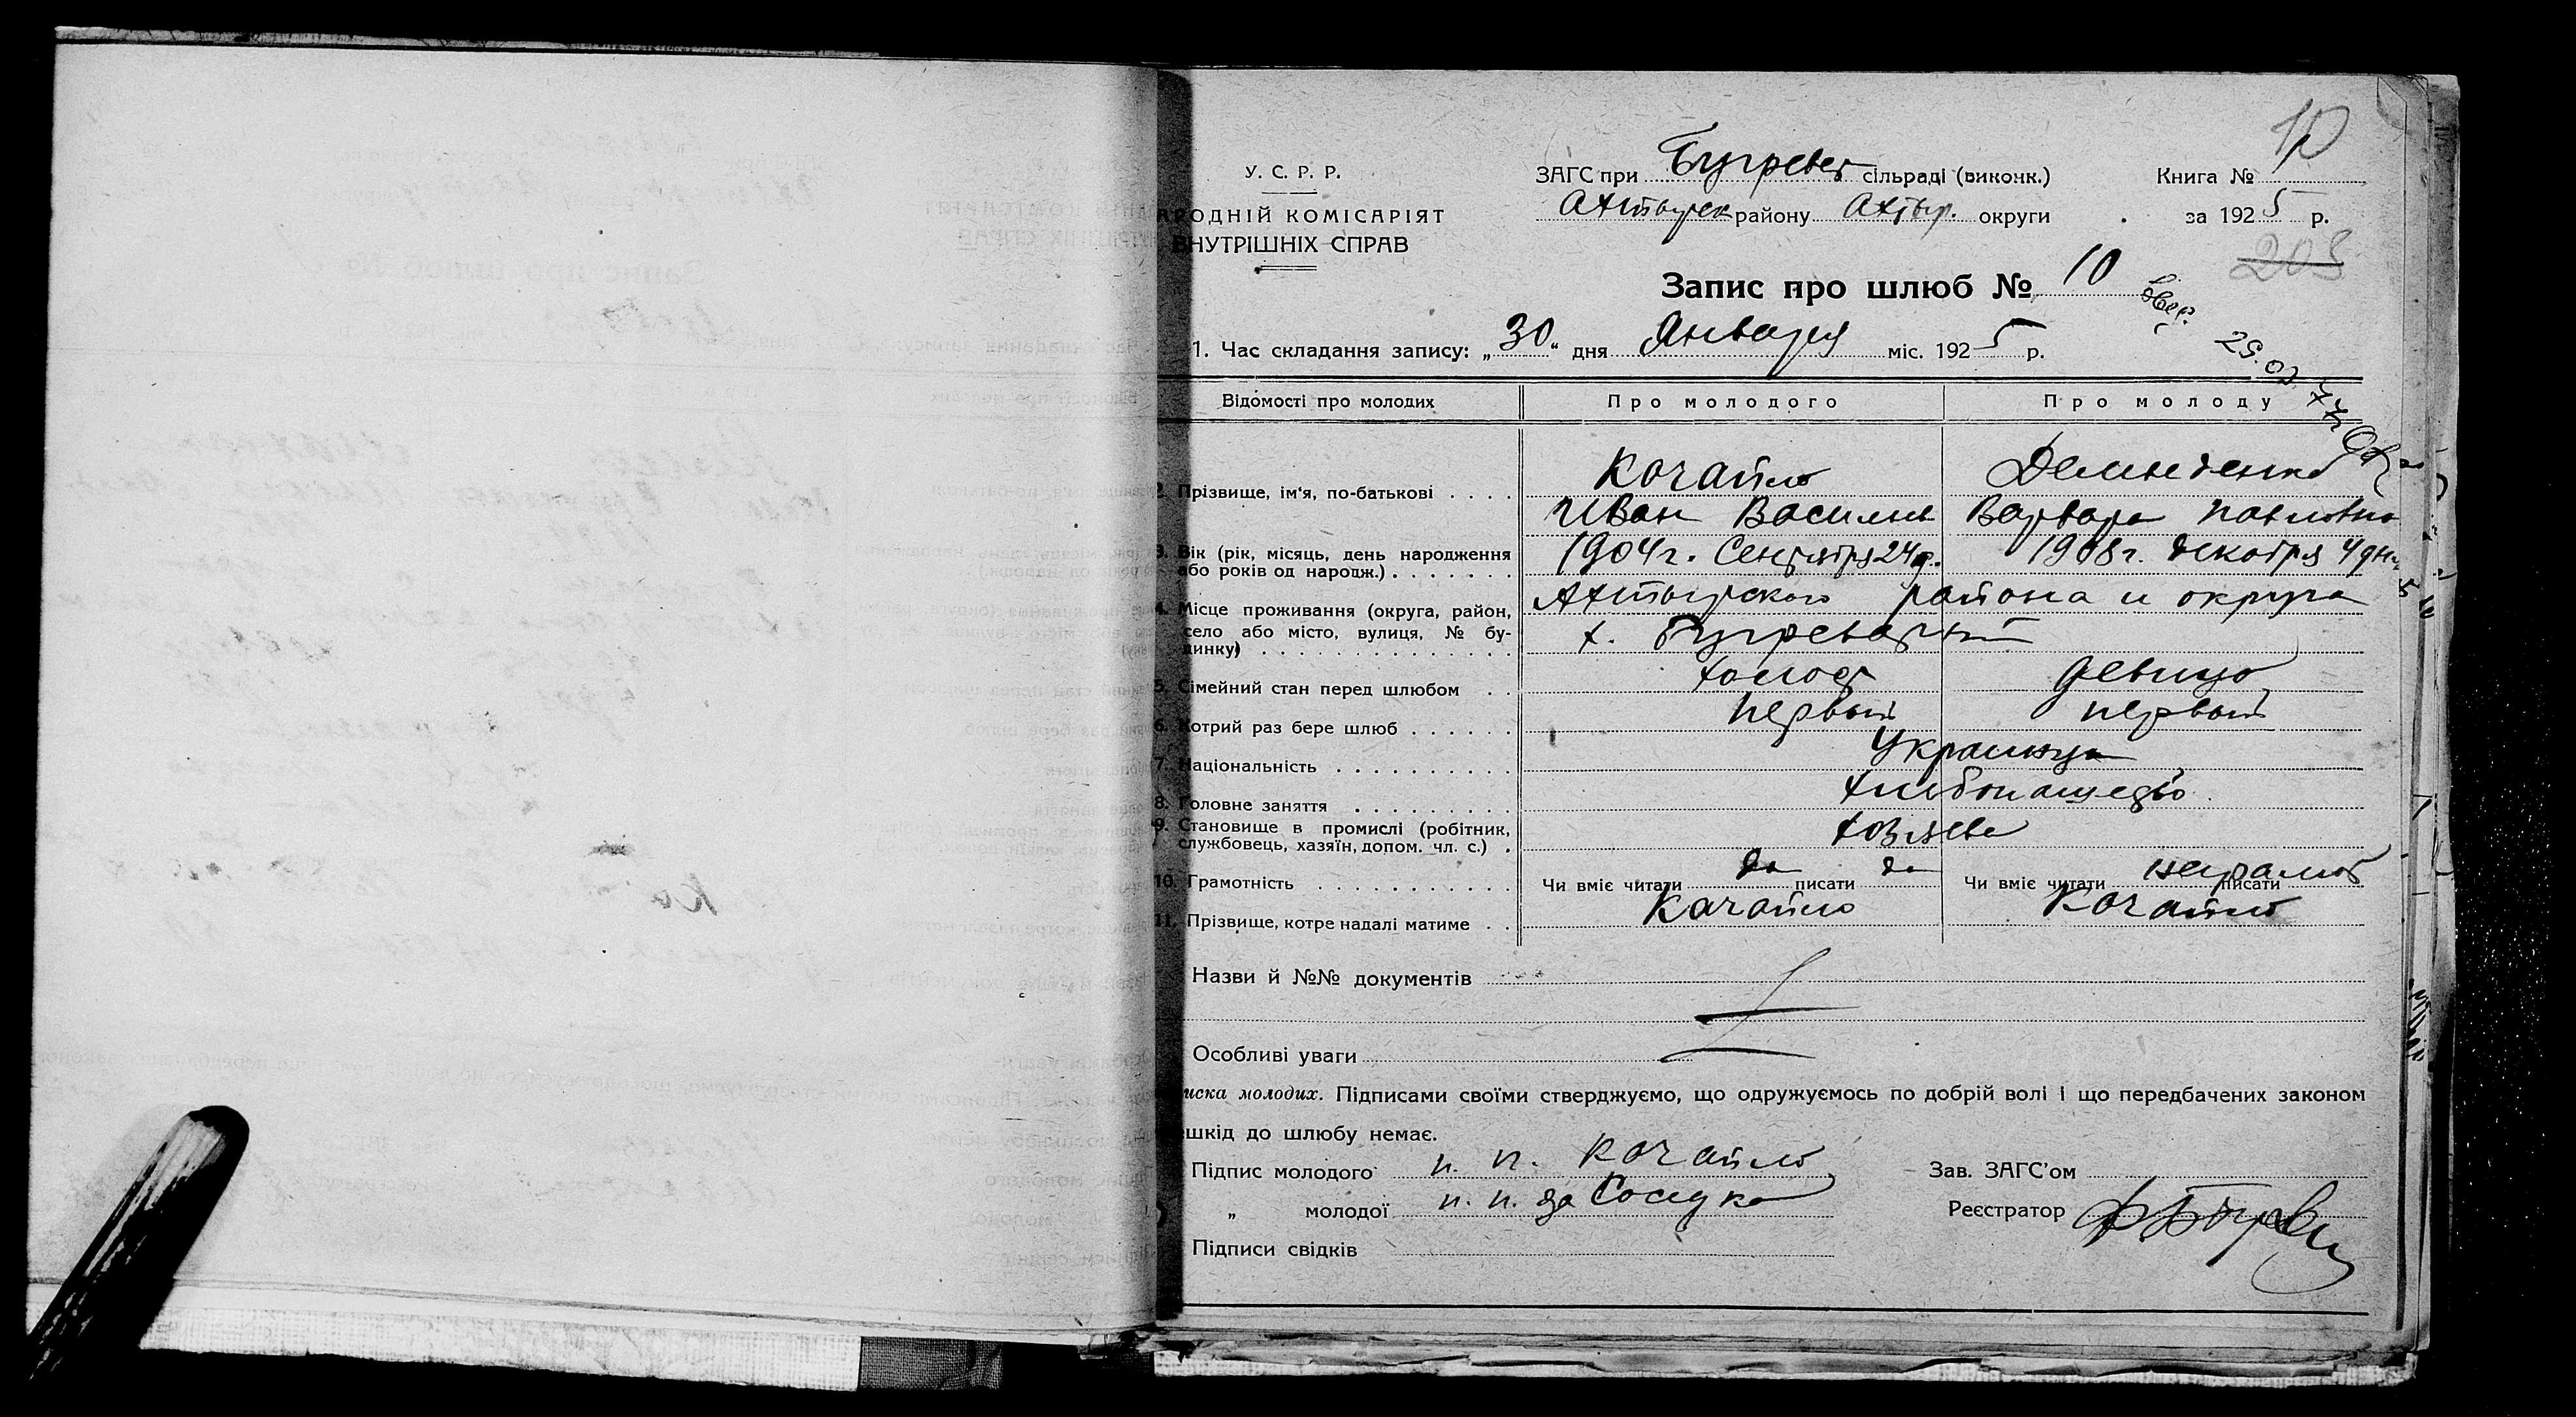 10
У. С. Р. Р.
АРОДНІЙ КОМІСАРІЯТ
ВНУТРІШНІХ СПРАВ
ЗАГС при Бугреват сільраді (виконк.)
Ахтырск району Ахтыр. округи
Книга №
за 1925 р.
205
Запис про шлюб № 10
1. Час складання запису: „30" дня Января міс. 1925 р.
Відомості про молодих Про молодого Про молоду
2. Прізвище, ім'я, по-батькові . . . . Качайло Демиденко
Иван Васильев Варвара Павловна
3. Вік (рік, місяць, день народження або років од народж.) . . . . . . . 1904г. Сентября 24д. 1908г. декабря 4 дня
4. Місце проживання (округа, район, Ахтырского района и округа
село або місто, вулиця, № бу-
динку) . . . . . . . . . . . . . . х. Бугреватый
5. Сімейний стан перед шлюбом . . холост девица
6. Котрий раз бере шлюб . . . . . . первый первый
7. Національність . . . . . . . . . . Украинцы
8. Головне заняття . . . . . . . . . хлебопашество
9. Становище в промислі (робітник,
службовець, хазяїн, допом. чл. с.) . хозяева
10. Грамотність . . . . . . . . . . . Чи вміє читати да писати да Чи вміє читати неграмот писати
11. Прізвище, котре надалі матиме . . Качайло Качайло
Назви й №№ документів
Особливі уваги
иска молодих. Підписами своїми стверджуємо, що одружуємось по добрій волі і що передбачених законом
ешкід до шлюбу немає.
Підпис молодого п. п. Качайло
„ молодої п. п. за
Підписи свідків
Зав. ЗАГС'ом
Реєстратор